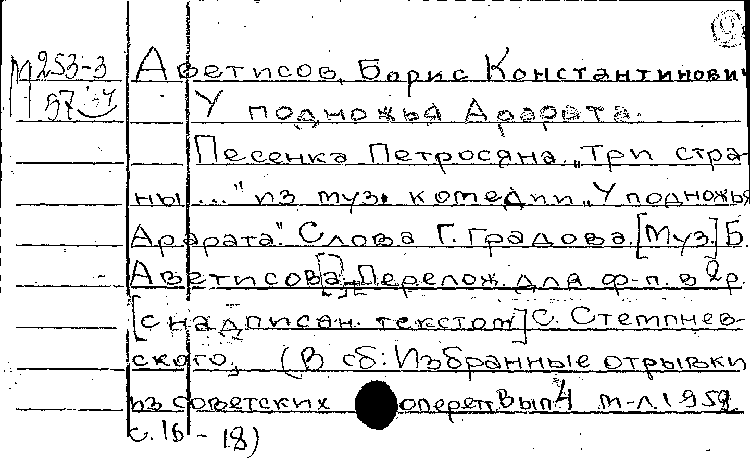 М 253-3 Аветисов, Борис Константинович
57 У подножья Арарата.
Песенка Петросяна „Три стра-
ны..." из муз. комедии „У подножья
Арарата". Слова Г. Градова. [Муз.] Б.
Аветисова[.] Перелож. для ф-п. в 2 р.
[с надписан. текстом] С. Стемпнев-
ского, (В сб: Избранные отрывки
из советских оперетт Вып 4 М-Л. 1952.
с. 16 - 18)